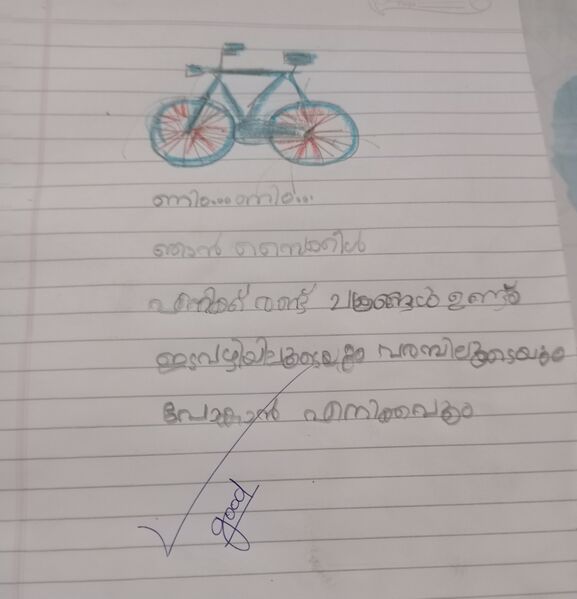 ണിം....ണിം...
ഞാൻ സൈക്കിൾ
എനിക്ക് രണ്ട് ചക്രങ്ങൾ ഉണ്ട്
ഇടവഴിയിലൂടെയും വരമ്പിലൂടെയും
പോകാൻ എനിക്കാവും
good